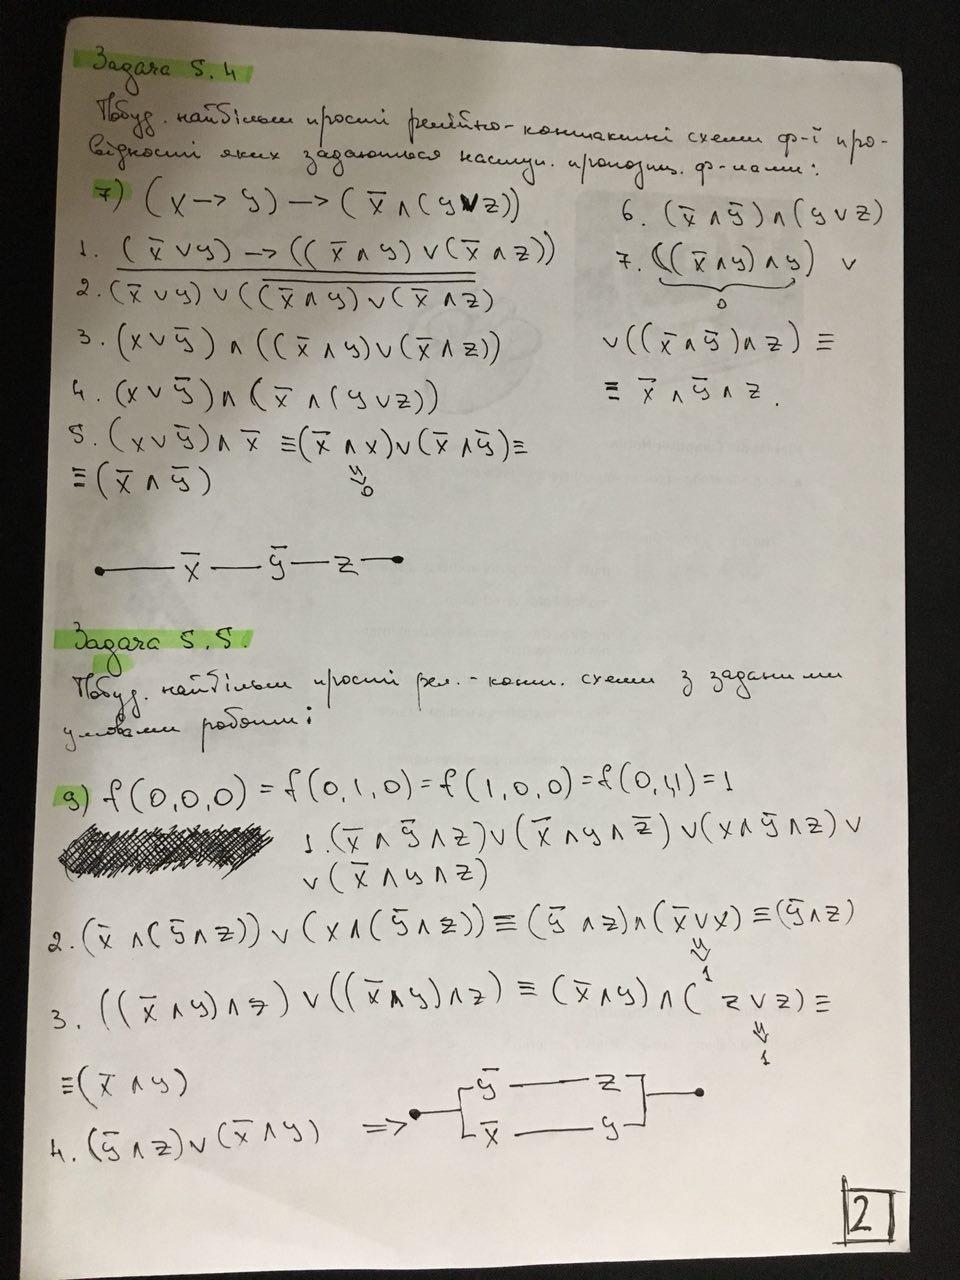 Задача 5.4
Побуд. найбільш прості релейно-контактні схеми ф-ї про-
відності яких задаються наступ. пропозиц. ф-лами:
7) (x → y) → (x̄ ∧ (y ∨ z))
1. (x̄ ∨ y) → ((x̄ ∧ y) ∨ (x̄ ∧ z))
2. (x̄ ∨ y) ∨ ((x̄ ∧ y) ∨ (x̄ ∧ z)
3. (x ∨ ȳ) ∧ ((x̄ ∧ y) ∨ (x̄ ∧ z))
4. (x ∨ ȳ) ∧ (x̄ ∧ (y ∨ z))
5. (x ∨ ȳ) ∧ x̄ ≡ (x̄ ∧ x) ∨ (x̄ ∧ ȳ) ≡
0
≡ (x̄ ∧ ȳ)
6. (x̄ ∧ ȳ) ∧ (y ∨ z)
7. ((x̄ ∧ y) ∧ y) ∨
0
∨ ((x̄ ∧ ȳ) ∧ z) ≡
≡ x̄ ∧ ȳ ∧ z.
x̄ — ȳ — z
Задача 5.5.
Побуд. найбільш прості рел.-конт. схеми з заданими
умовами роботи:
9) f(0,0,0) = f(0,1,0) = f(1,0,0) = f(0,1,1) = 1
1. (x̄ ∧ ȳ ∧ z) ∨ (x̄ ∧ y ∧ z̄) ∨ (x ∧ ȳ ∧ z) ∨
∨ (x̄ ∧ y ∧ z)
2. (x̄ ∧ (ȳ ∧ z)) ∨ (x ∧ (ȳ ∧ z)) ≡ (ȳ ∧ z) ∧ (x̄ ∨ x) ≡ (ȳ ∧ z)
1
3. ((x̄ ∧ y) ∧ z) ∨ ((x̄ ∧ y) ∧ z) ≡ (x̄ ∧ y) ∧ (z ∨ z) ≡
1
≡ (x̄ ∧ y)
4. (ȳ ∧ z) ∨ (x̄ ∧ y) =>
ȳ — z
x̄ — y
2